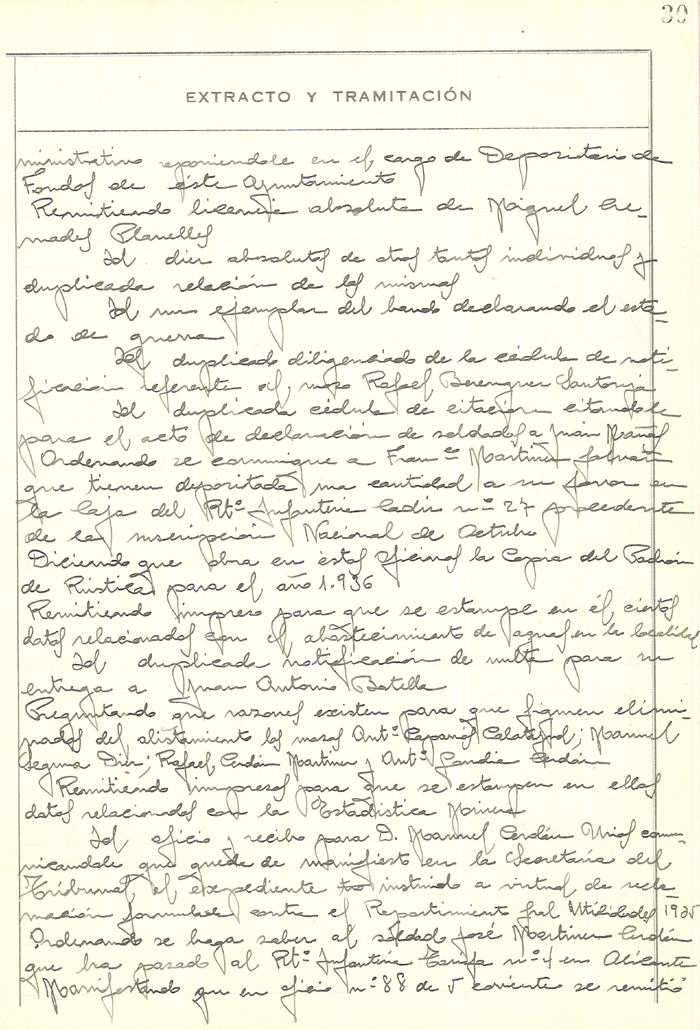 30
EXTRACTO Y TRAMITACIÓN
ministrativo reponiendole en el cargo de Depositario de
Fondos de éste Ayuntamiento
Remitiendo licencia absoluta de Miguel Cre-
mades Planelles
Id. diez absolutas de otros tantos individuos y
duplicada relación de los mismos
Id un ejemplar del bando declarando el esta-
do de guerra
Id duplicado diligenciado de la cédula de noti-
ficación referente al mozo Rafael Berenguer Santonja
Id duplicada cédula de citación citandole
para el acto de declaración de soldados a Juan Mañas
Ordenando se comunique a Franco Martinez
que tienen depositada una cantidad a su favor en
la Caja del Rto Infanteria Cadiz nº 27 procedente
de la suscripción Nacional de Octubre
Diciendo que obra en éstas oficinas la Copia del Padrón
de Rústica para el año 1.936
Remitiendo impreso para que se estampe en él ciertos
datos relacionados con el abastecimiento de aguas en la localidad
Id duplicada notificación de multa para su
entrega a Juan Antonio Botella
Preguntando que razones existen para que figuren elimi-
nados del alistamiento los mozos Antº Calatayud; Manuel
Segura Diez; Rafael Cerdán Martinez y Antº Candia Cerdán
Remitiendo impresos para que se estampen en ellos
datos relacionados con la Estadistica Minera
Id oficio y recibo para D. Manuel Cerdán Urios comu-
nicandole que queda de manifiesto en la Secretaria del
Tribunal el expediente instruido a virtud de recla-
mación formulada contra el Repartimiento gral Utilidades 1935
Ordenando se haga saber al soldado José Martinez Cerdán
que ha pasado al Rto Infanteria Tarifa nº 4 en Alicante
Manifestando que en oficio nº 88 de 5 corriente se remitió